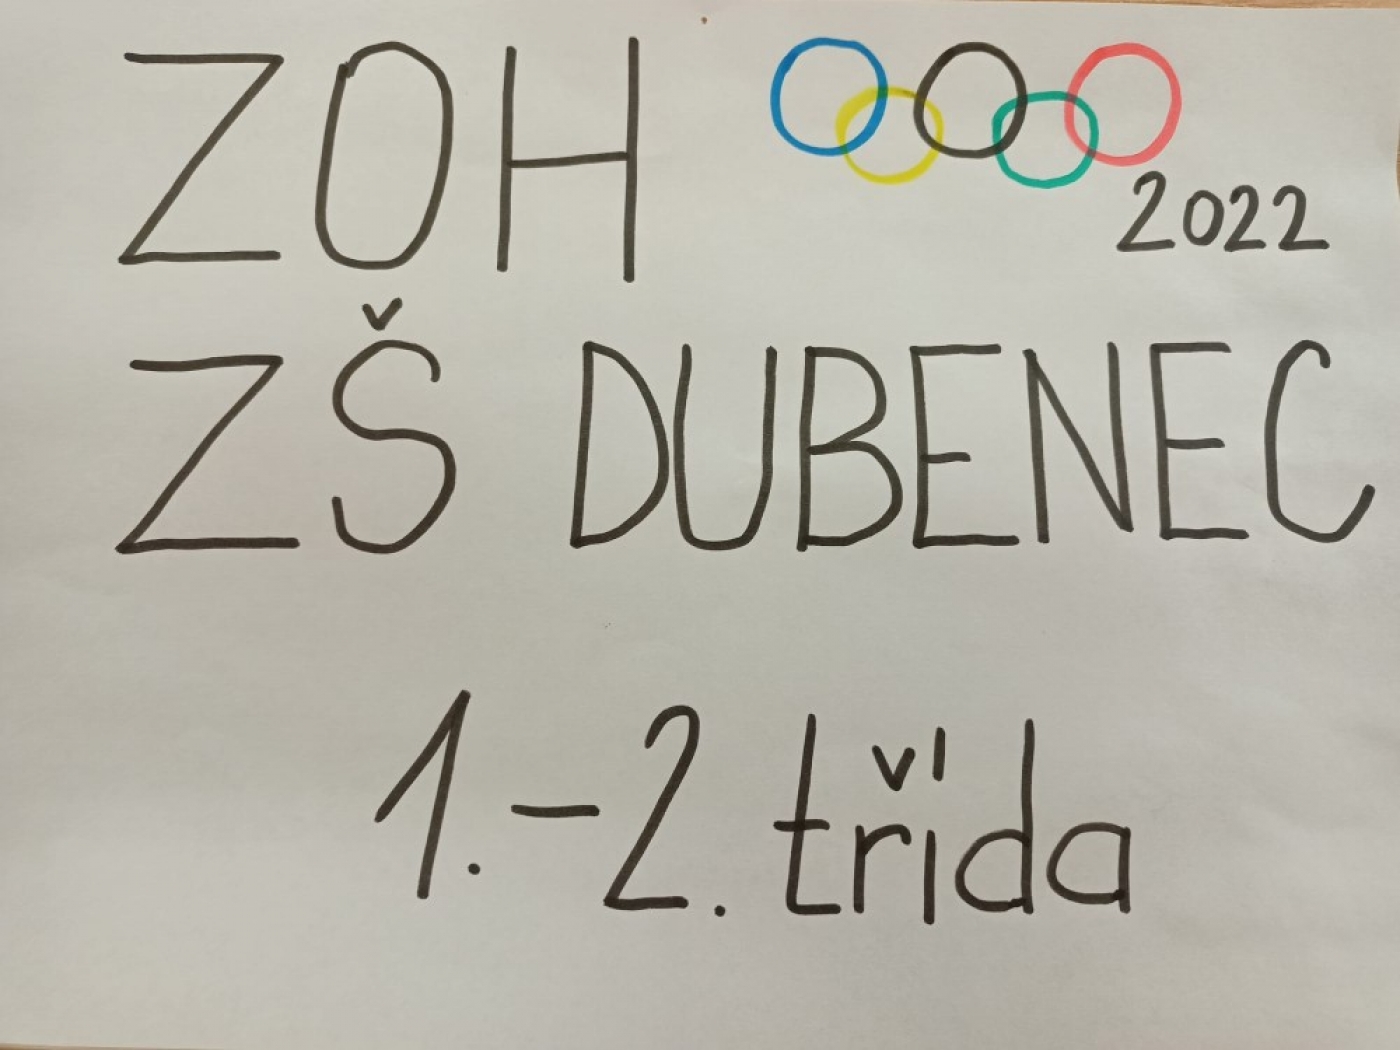 ZOH
2022
ZŠ DUBENEC
1.-2. třída